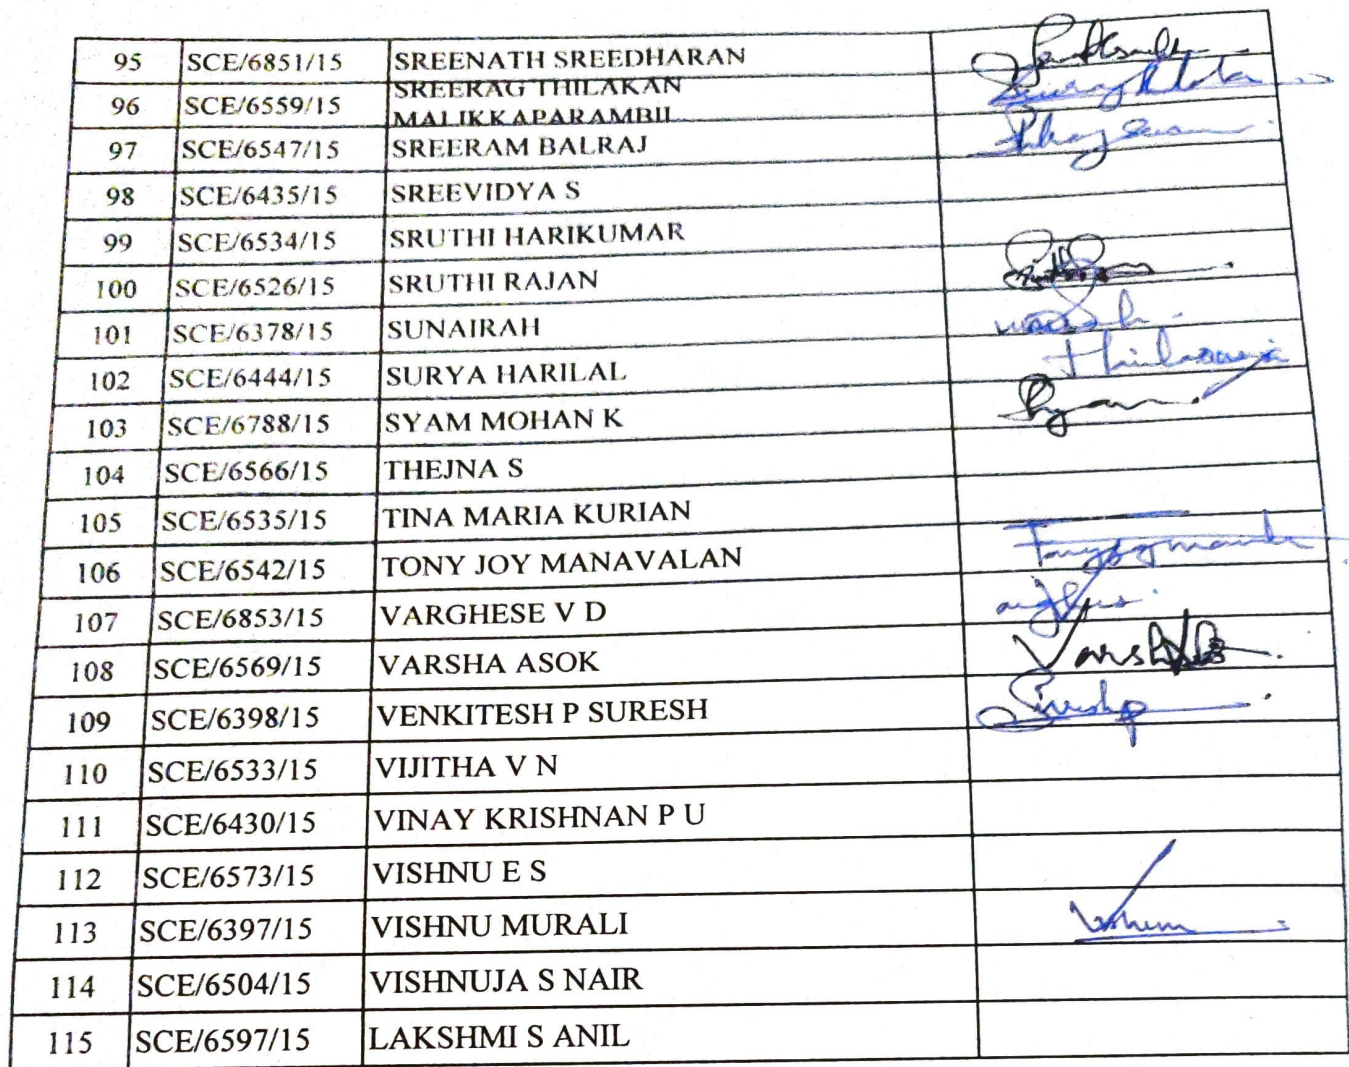 95 SCE/6851/15 SREENATH SREEDHARAN
96 SCE/6559/15 SREERAG THILAKAN
MALIKKAPARAMBIL
97 SCE/6547/15 SREERAM BALRAJ
98 SCE/6435/15 SREEVIDYA S
99 SCE/6534/15 SRUTHI HARIKUMAR
100 SCE/6526/15 SRUTHI RAJAN
101 SCE/6378/15 SUNAIRAH
102 SCE/6444/15 SURYA HARILAL
103 SCE/6788/15 SYAM MOHAN K
104 SCE/6566/15 THEJNA S
105 SCE/6535/15 TINA MARIA KURIAN
106 SCE/6542/15 TONY JOY MANAVALAN
107 SCE/6853/15 VARGHESE V D
108 SCE/6569/15 VARSHA ASOK
109 SCE/6398/15 VENKITESH P SURESH
110 SCE/6533/15 VIJITHA V N
111 SCE/6430/15 VINAY KRISHNAN P U
112 SCE/6573/15 VISHNU E S
113 SCE/6397/15 VISHNU MURALI
114 SCE/6504/15 VISHNUJA S NAIR
115 SCE/6597/15 LAKSHMI S ANIL